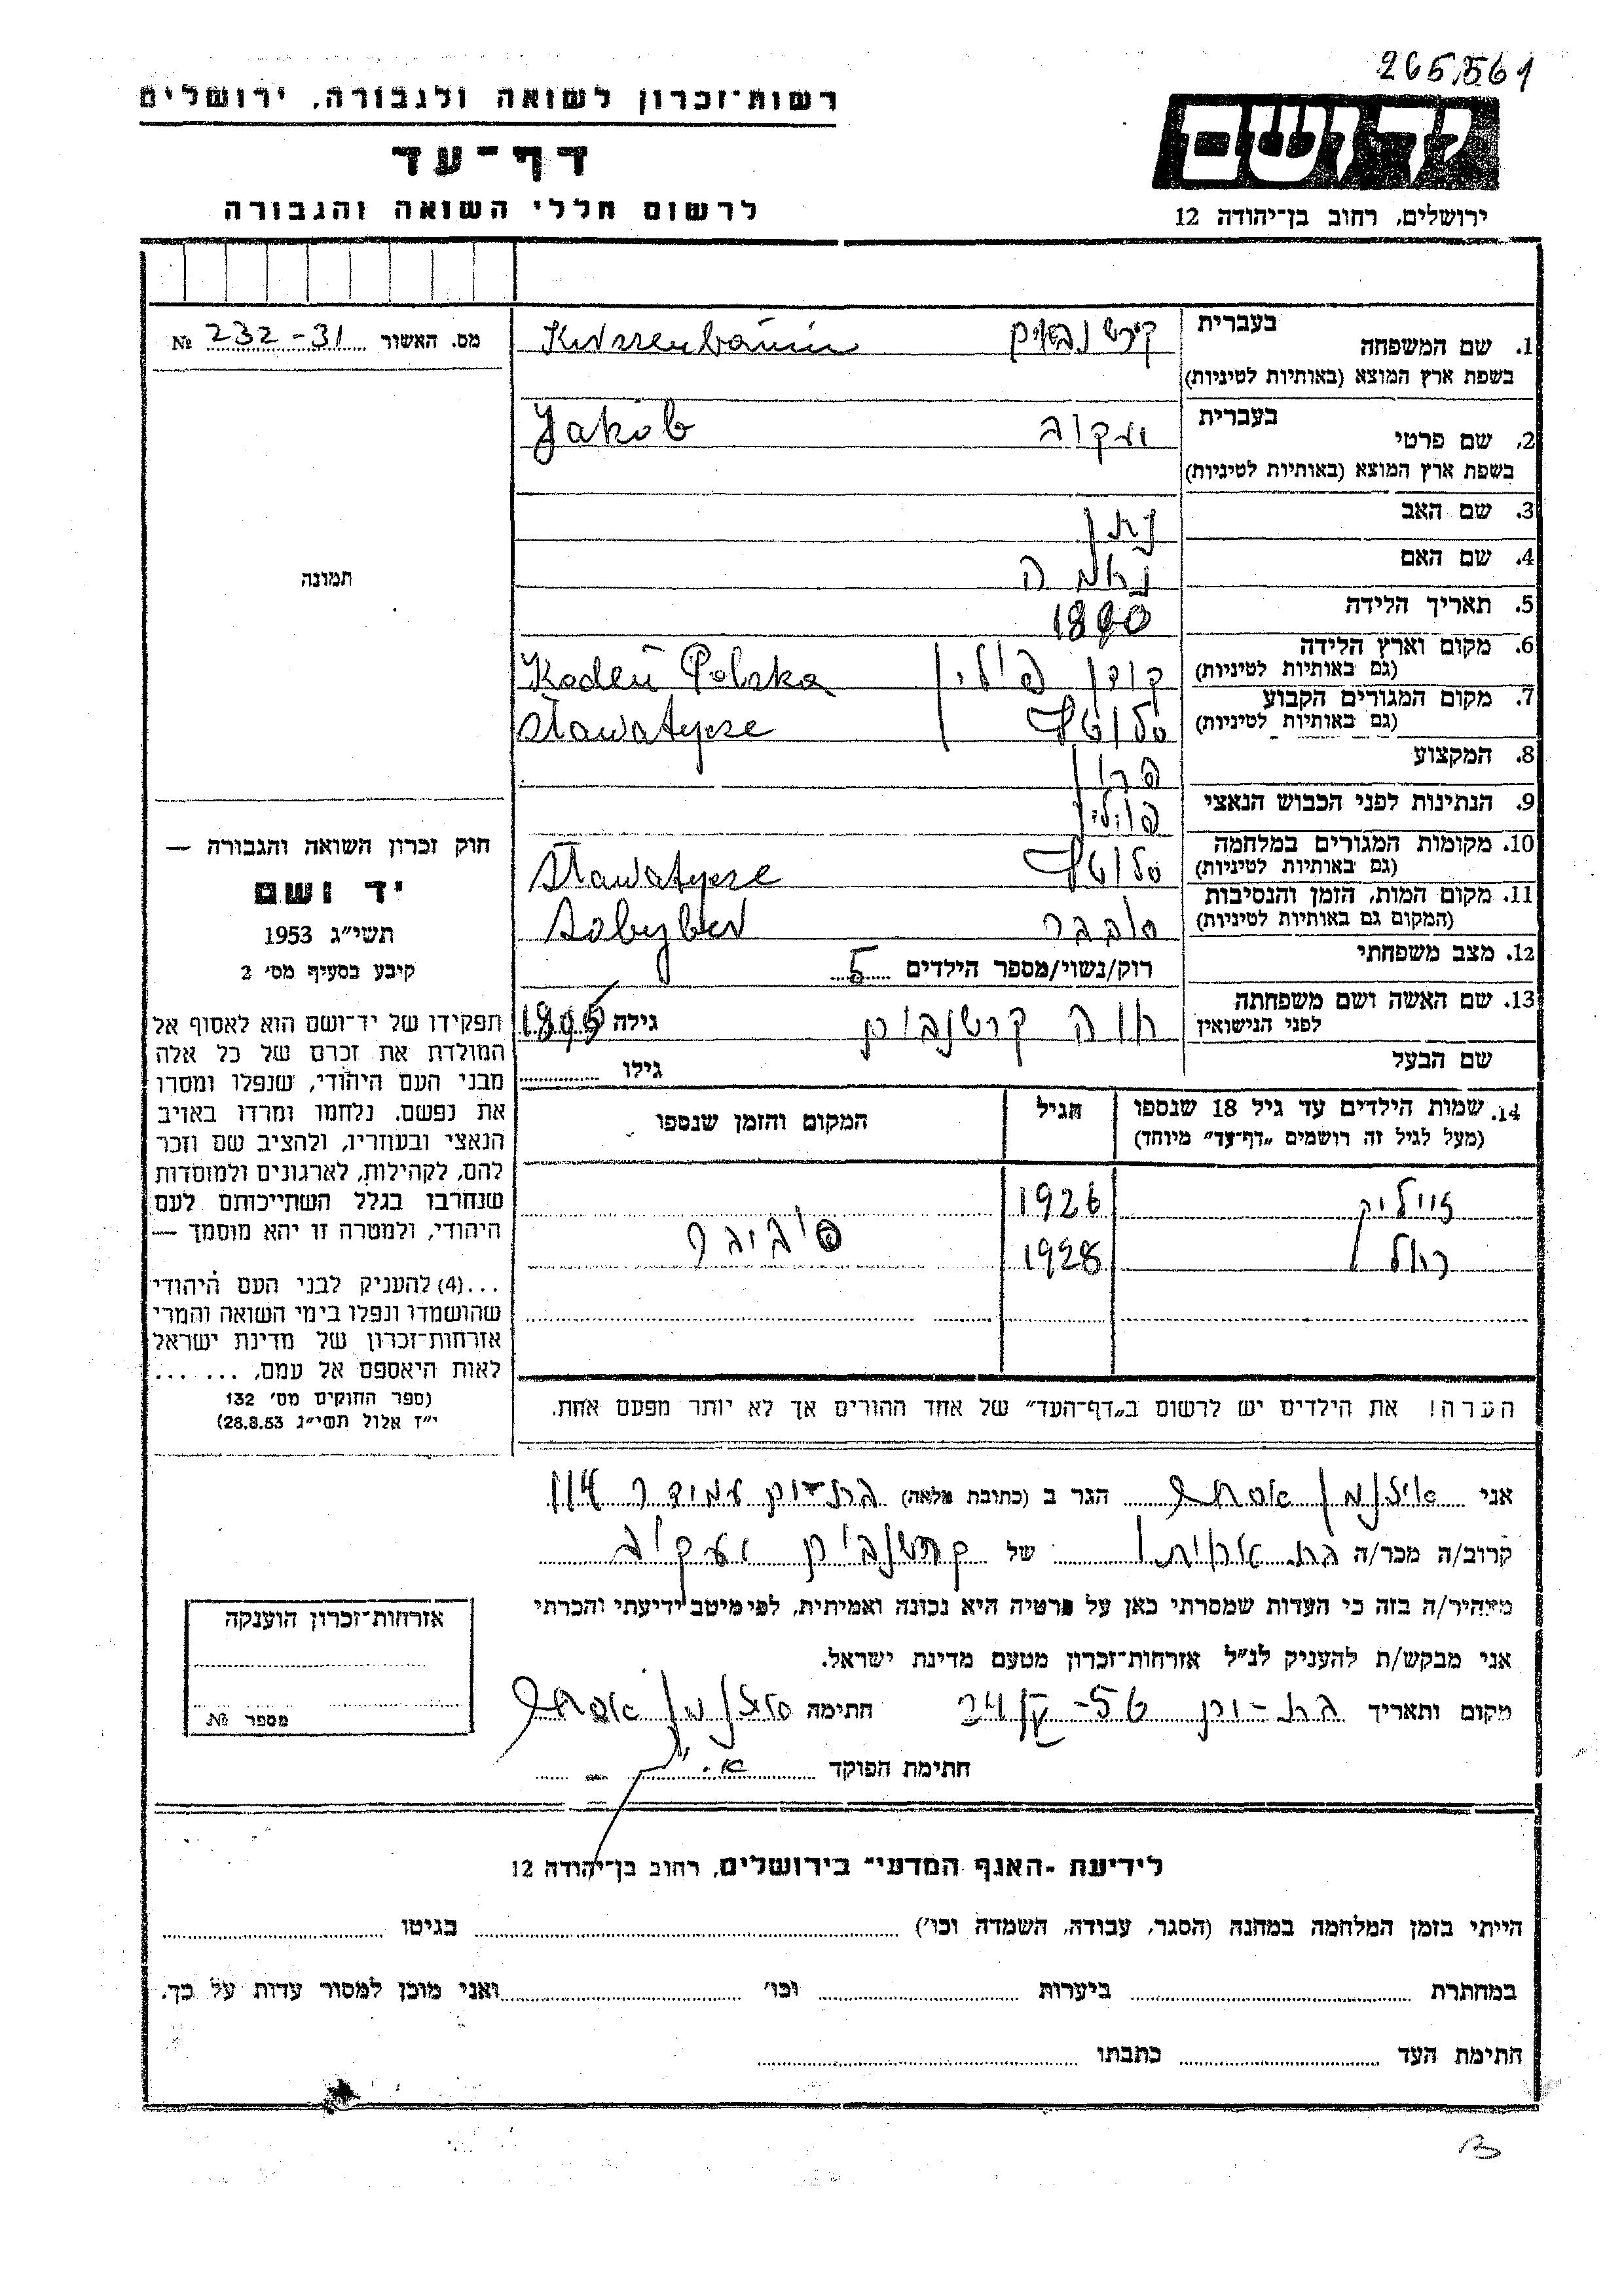 265,561
רשות־זכרון לשואה ולגבורה, ירושלים
יד ושם
דף־עד
לרשום חללי השואה והגבורה
ירושלים, רחוב בן־יהודה 12
מס. האשור 232-31 №
1. שם המשפחה
בעברית
בשפת ארץ המוצא (באותיות לטיניות)
קירשנבוים
2. שם פרטי
בעברית
בשפת ארץ המוצא (באותיות לטיניות)
יעקוב Jakób
3. שם האב
נתן
4. שם האם
נאמה
5. תאריך הלידה
1890
6. מקום וארץ הלידה
(גם באותיות לטיניות)
קודן פולין Kodeń Polska
7. מקום המגורים הקבוע
(גם באותיות לטיניות)
Sławatycze
8. המקצוע
9. הנתינות לפני הכבוש הנאצי
פולין
10. מקומות המגורים במלחמה
(גם באותיות לטיניות)
Sławatycze
11. מקום המות, הזמן והנסיבות
(המקום גם באותיות לטיניות)
סובבר Sobyber
12. מצב משפחתי
רוק/נשוי/מספר הילדים 5
13. שם האשה ושם משפחתה
לפני הנישואין
חוה קרשנבוים גילה 1895
שם הבעל
גילו
תמונה
חוק זכרון השואה והגבורה —
יד ושם
תשי״ג 1953
קיבע בסעיף מס׳ 2
תפקידו של יד־ושם הוא לאסוף אל
המולדת את זכרם של כל אלה
מבני העם היהודי, שנפלו ומסרו
את נפשם, נלחמו ומרדו באויב
הנאצי ובעוזריו, ולהציב שם וזכר
להם, לקהילות, לארגונים ולמוסדות
שנחרבו בגלל השתייכותם לעם
היהודי, ולמטרה זו יהא מוסמך —
...(4) להעניק לבני העם היהודי
שהושמדו ונפלו בימי השואה והמרי
אזרחות־זכרון של מדינת ישראל
לאות היאספם אל עמם, ... ...
(ספר החוקים מס׳ 132
י״ז אלול תשי״ג 28.8.53)
14. שמות הילדים עד גיל 18 שנספו
(מעל לגיל זה רושמים „דף־עד״ מיוחד)
הגיל
המקום והזמן שנספו
זייליק 1926
רחל 1928
סוביבר
הערה! את הילדים יש לרשום ב„דף־העד״ של אחד ההורים אך לא יותר מפעם אחת.
אני אסתר הגר ב (כתובת מלאה) עמידר 114
קרוב/ה מכר/ה בת אחיתו של קרשנבוים יעקוב
מצהיר/ה בזה כי העדות שמסרתי כאן על פרטיה היא נכונה ואמיתית, לפי מיטב ידיעתי והכרתי
אני מבקש/ת להעניק לנ״ל אזרחות־זכרון מטעם מדינת ישראל.
מקום ותאריך בת-ים 56- חתימה אסתר
חתימת הפוקד
אזרחות־זכרון הוענקה
מספר №
לידיעת „האגף המדעי״ בירושלים, רחוב בן־יהודה 12
הייתי בזמן המלחמה במחנה (הסגר, עבודה, השמדה וכו׳) בגיטו
במחתרת ביערות וכו׳ ואני מוכן למסור עדות על כך.
חתימת העד כתבתו